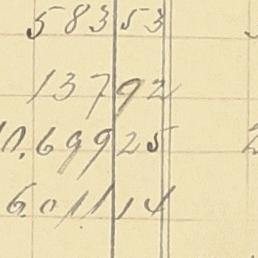 58353
13792
0,69925
6.01114